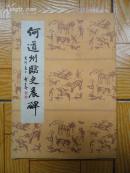 何道州臨史晨碑